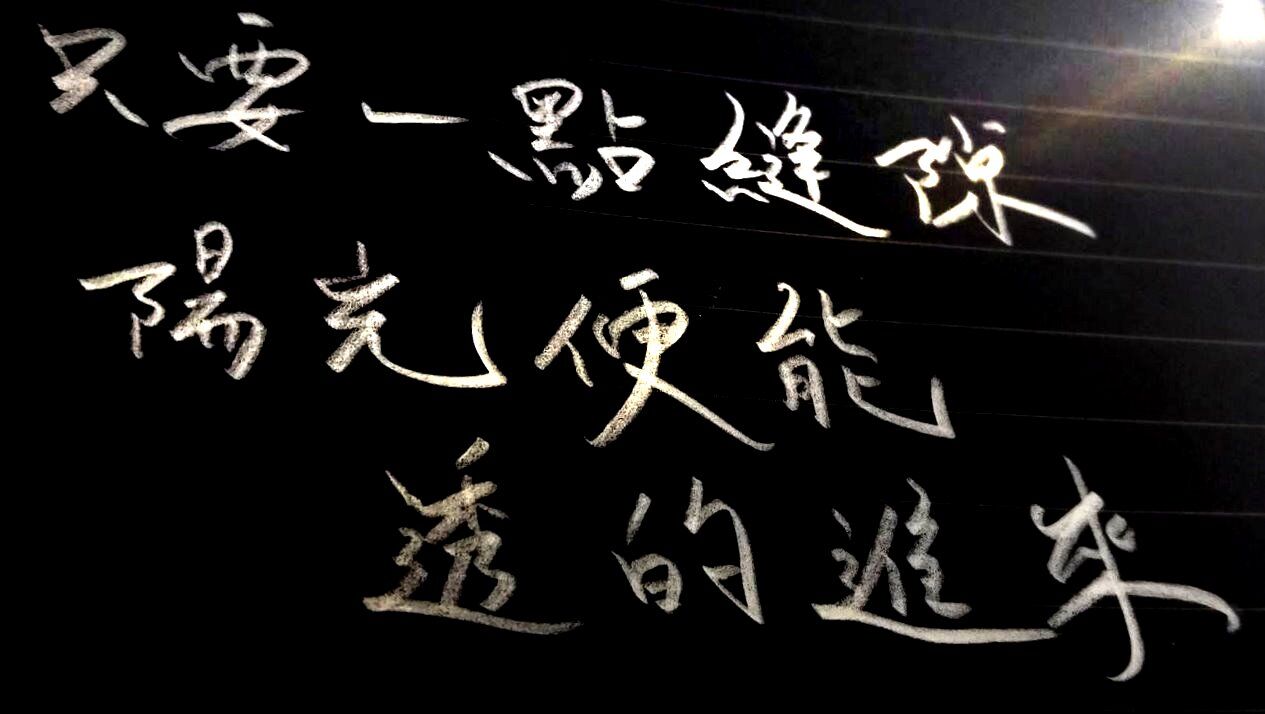 只要一點縫隙
陽光便能
透的進來